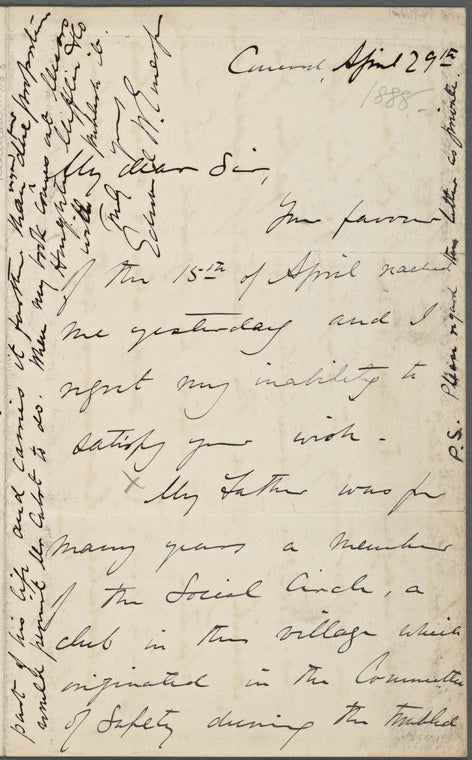 Concord, April 29th
1888
My dear Sir,
Your favour
of the 15th of April reached
me yesterday and I
regret my inability to
satisfy your wish.
x My Father was for
many years a member
of the Social Circle, a
club in this village which
originated in the Committee
of Safety during the troubled
part of his life and carries it further than due proportion
would permit Mr Cabot to do. When my book comes out
Houghton Mifflin & Co
will publish it.
Truly yours
Edward W. Emerson
P.S. Please regard this letter as private.